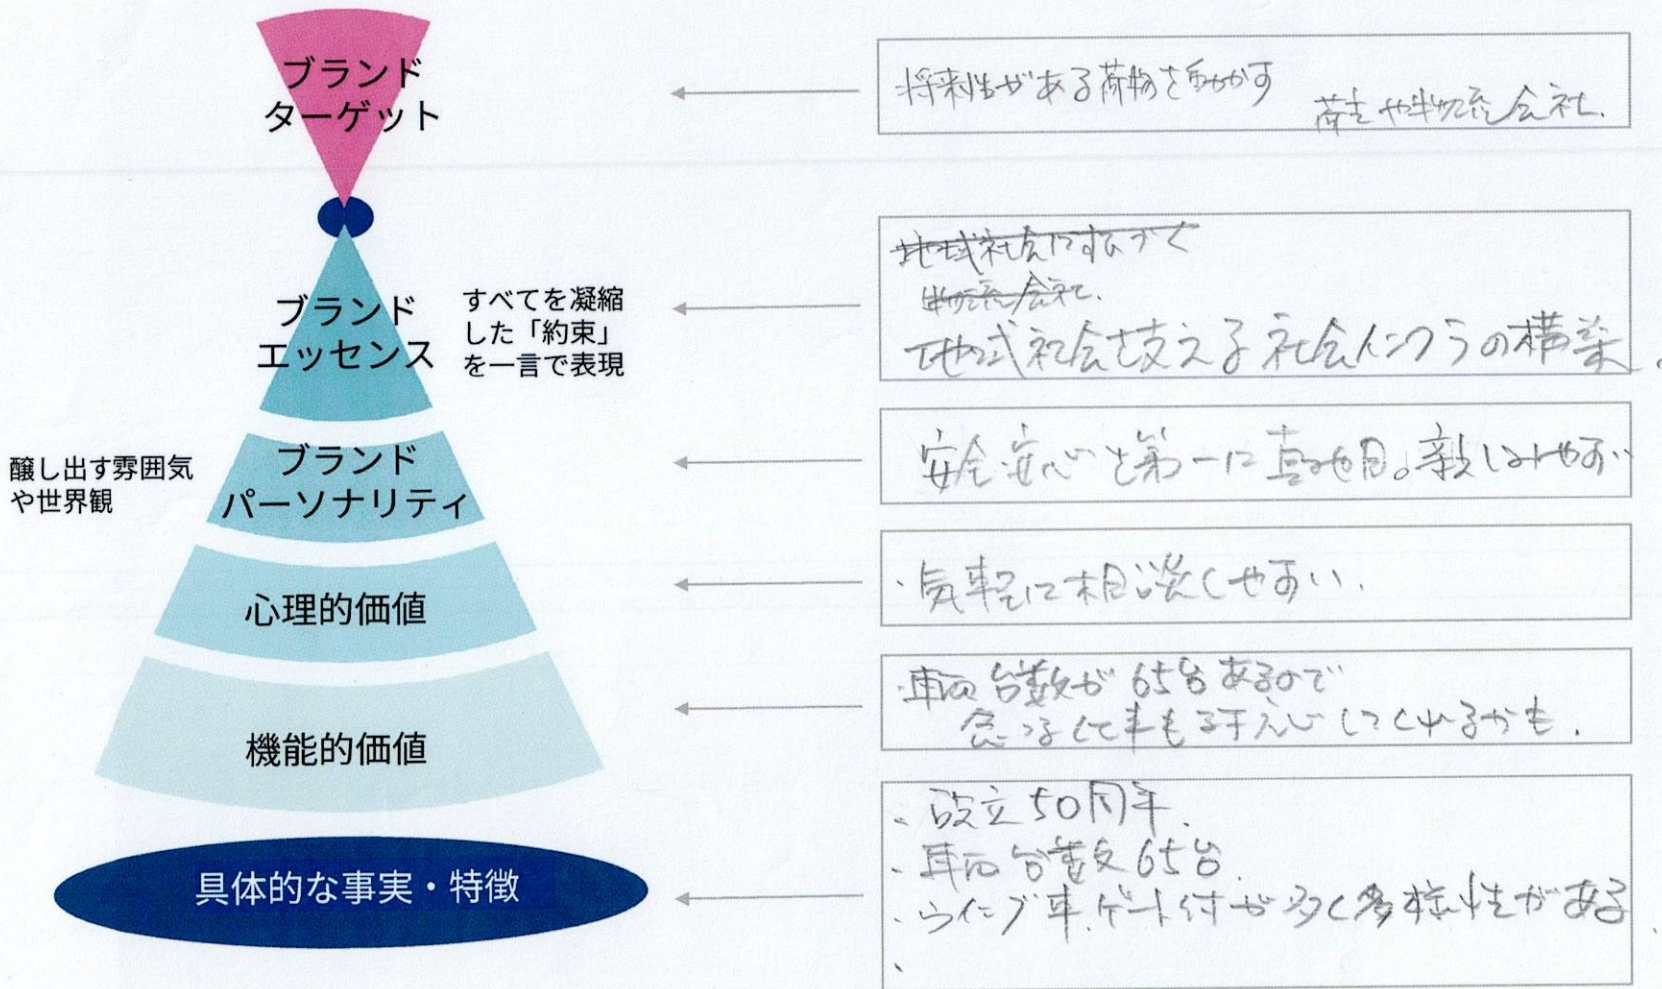 ブランド
ターゲット
将来性がある荷物を動かす
荷主や物流会社.
ブランド
エッセンス
すべてを凝縮
した「約束」
を一言で表現
地域社会にすむづく
物流会社.
地域社会を支える社会インフラの構築.
醸し出す雰囲気
や世界観
ブランド
パーソナリティ
安全・安心を第一に真面目。親しみやすい
心理的価値
・気軽に相談しやすい.
機能的価値
・車両台数が65台あるので
急な仕事も対応してくれるかも.
具体的な事実・特徴
・設立50周年.
・車両台数65台.
・ウイング車.ゲート付が多く多様性がある.